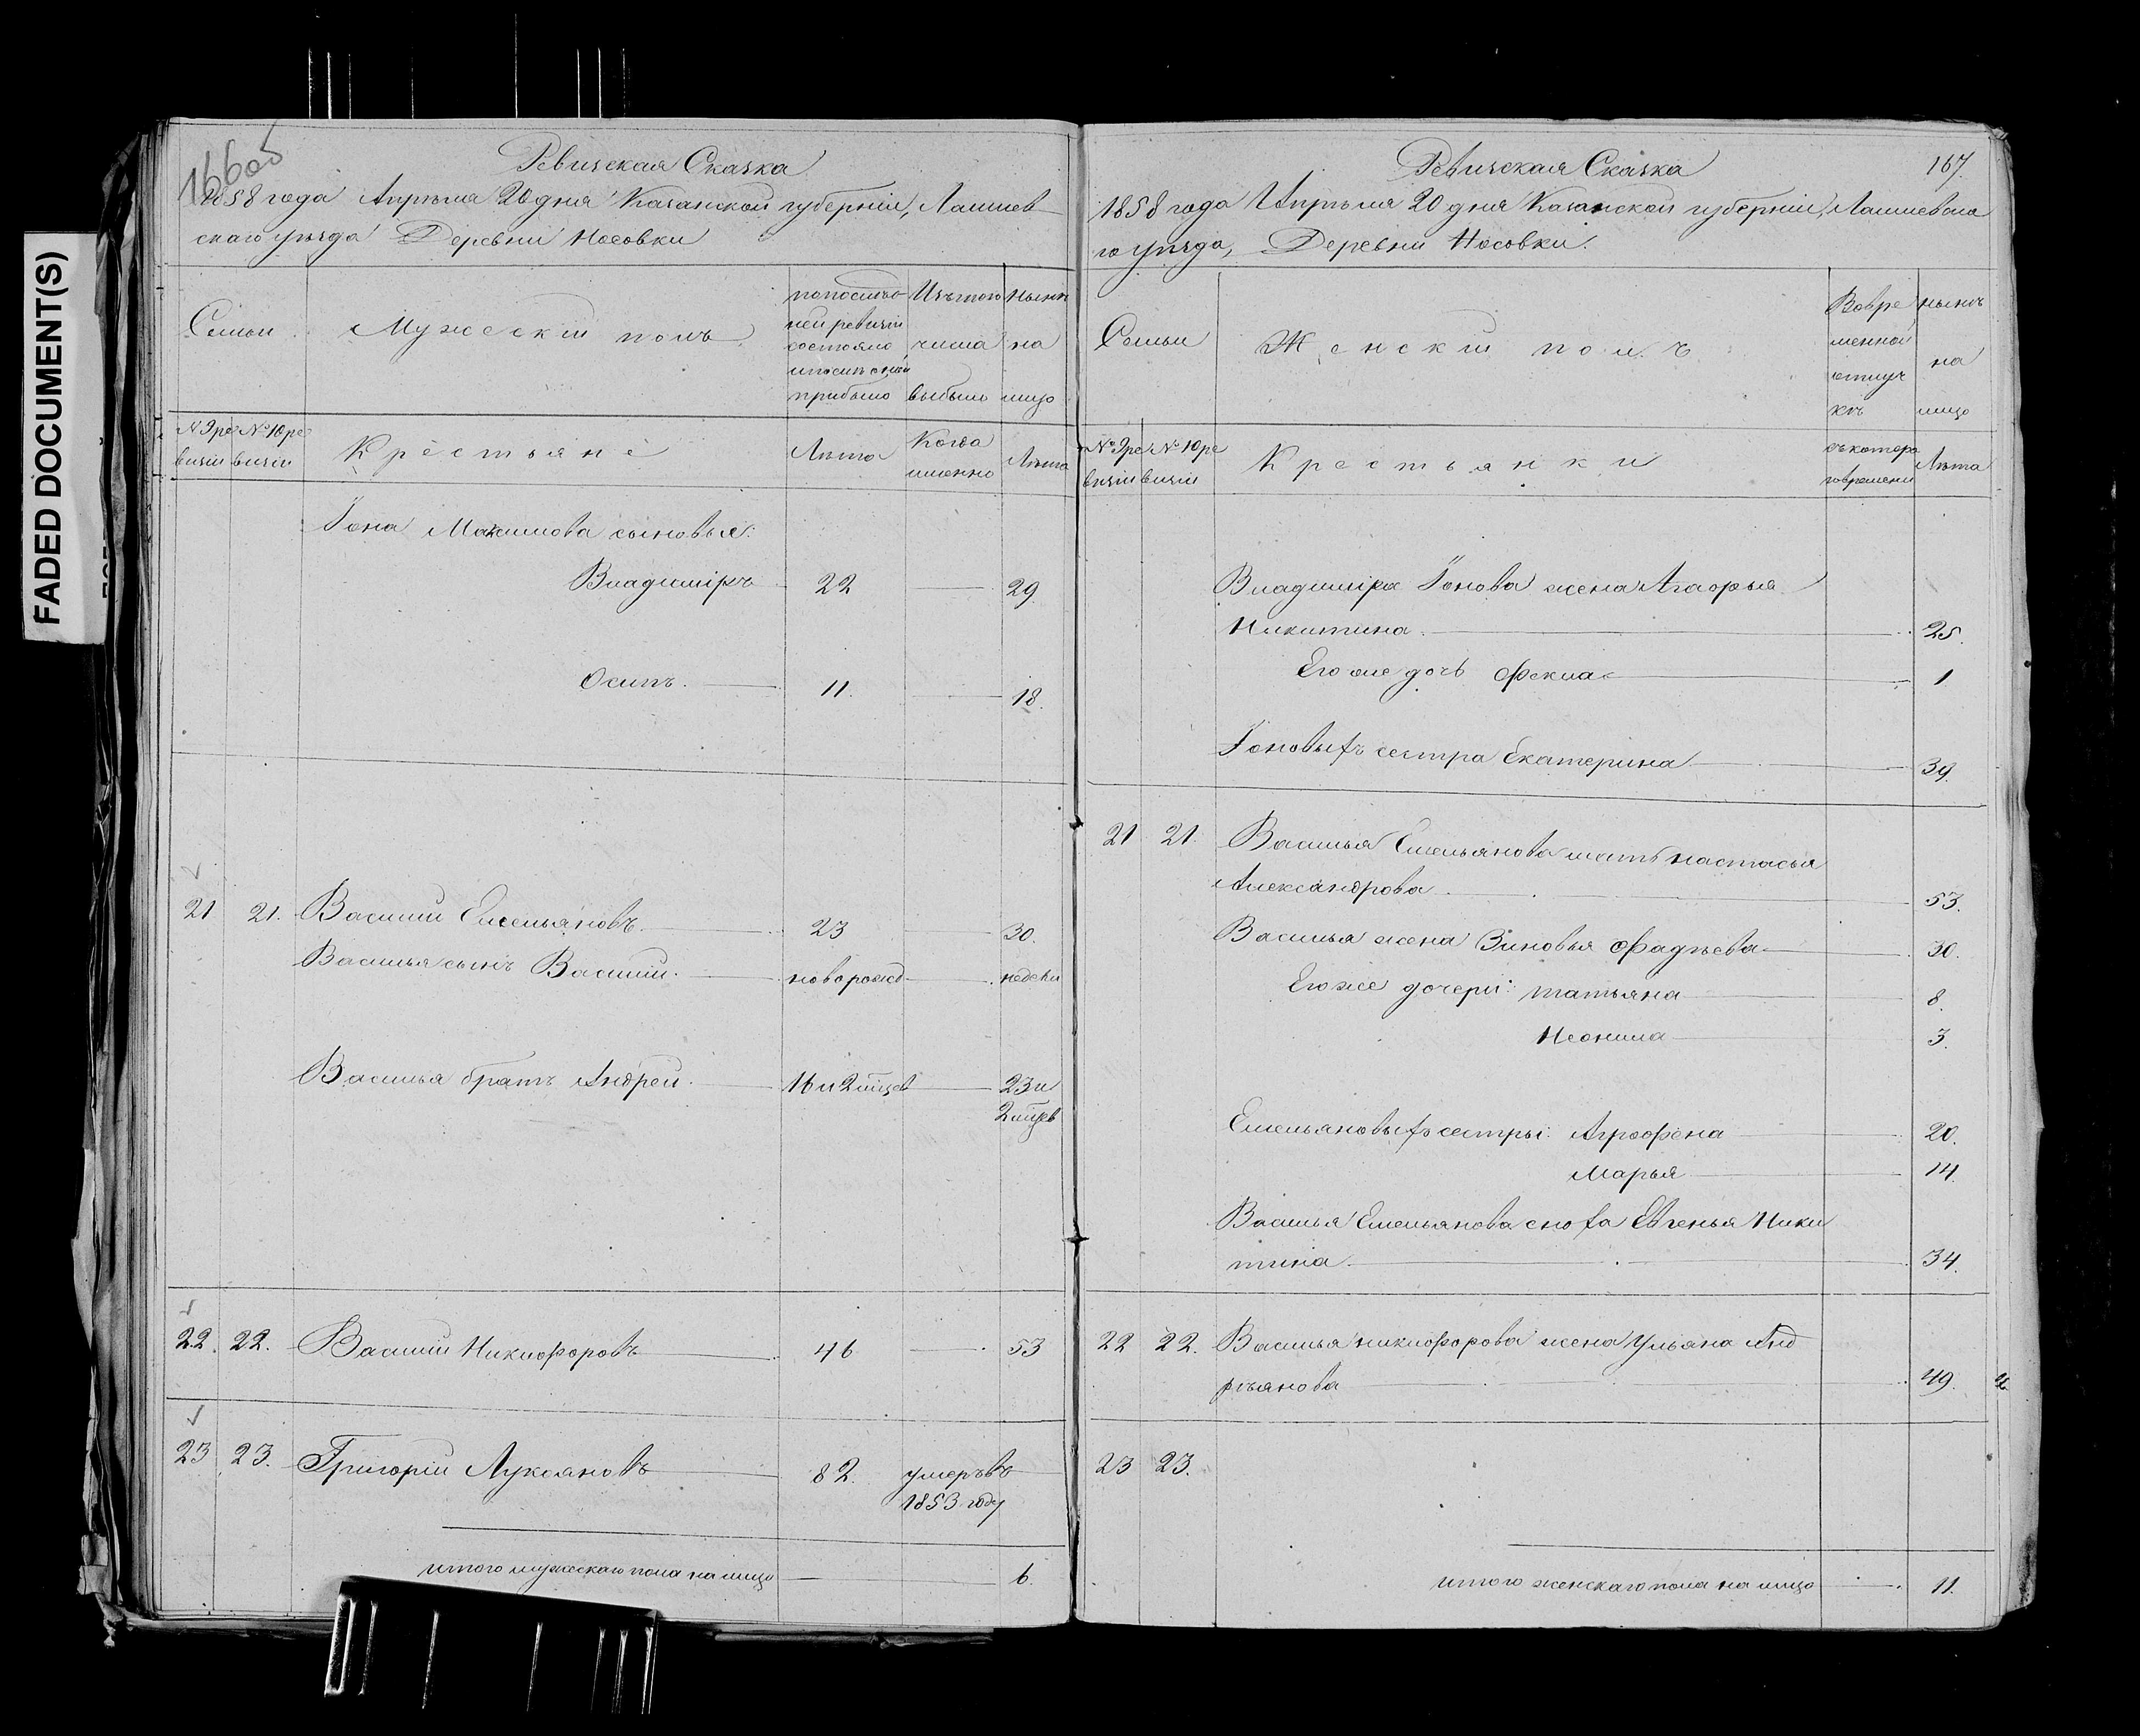 FADED DOCUMENT(S)
166об
Ревизская Сказка
1858 года Апрѣля 20 дня Казанской губерніи, Лаишев
скаго уѣзда Деревни Носовки
Семьи Мужескій полъ
по послѣд
ней ревизіи
состояло
и послѣ оной
прибыло
Изъ того
числа
выбыло
нынѣ
на
лицо
№ 9 ре
визіи
№ 10 ре
визіи
Крестьяне
Лѣта
Когда
именно
Лѣта
Іона Максимова сыновья:
Владиміръ 22 29
Осипъ. 11. 18.
21 21. Василій Емельяновъ. 23 30.
Василья сынъ Василій. новорожд недели
Василья братъ Андрей. 16 и 2 мѣцев 23 и
2 мѣцев
22. 22. Василій Никифоровъ 46 53
23 23. Григорій Лукояновъ 82. умеръ въ
1853 году
итого мужескаго пола на лицо 6.
Ревизская Сказка 167.
1858 года Апрѣля 20 дня Казанской губерніи, Лаишевска
го уѣзда, Деревни Носовки.
Семьи Женскій полъ
Во вре
менной
отлуч
кѣ
нынѣ
на
лицо
№ 9 ре
визіи
№ 10 ре
визіи
Крестьянки
съ котора
го времени
Лѣта
Владиміра Іонова жена Агафья
Никитина. 25.
Его же дочь Фекла 1
Іоновыхъ сестра Екатерина 39.
21 21. Василья Емельянова мать настасья
Александрова. 53.
Василья жена Зиновья Фадѣева 30.
Его же дочери: татьяна 8.
Неонила 3.
Емельяновыхъ сестры: Аграфена 20.
Марья 14.
Василья Емельянова сноха Евгенья Ники
тина. 34.
22 22. Василья никифорова жена Ульяна Анд
рѣянова 49.
23 23.
итого женскаго пола на лицо 11.